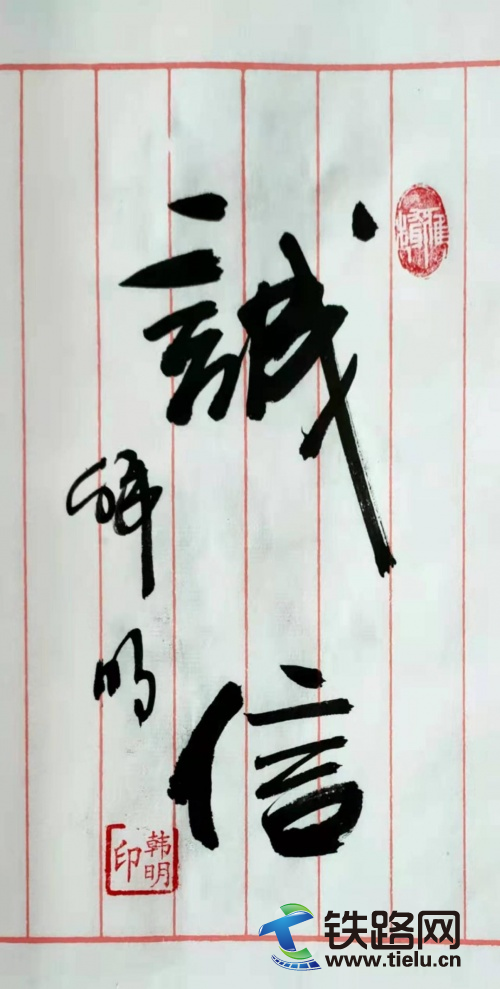 誠信
韩明
韩明印
铁路网
www.tielu.cn